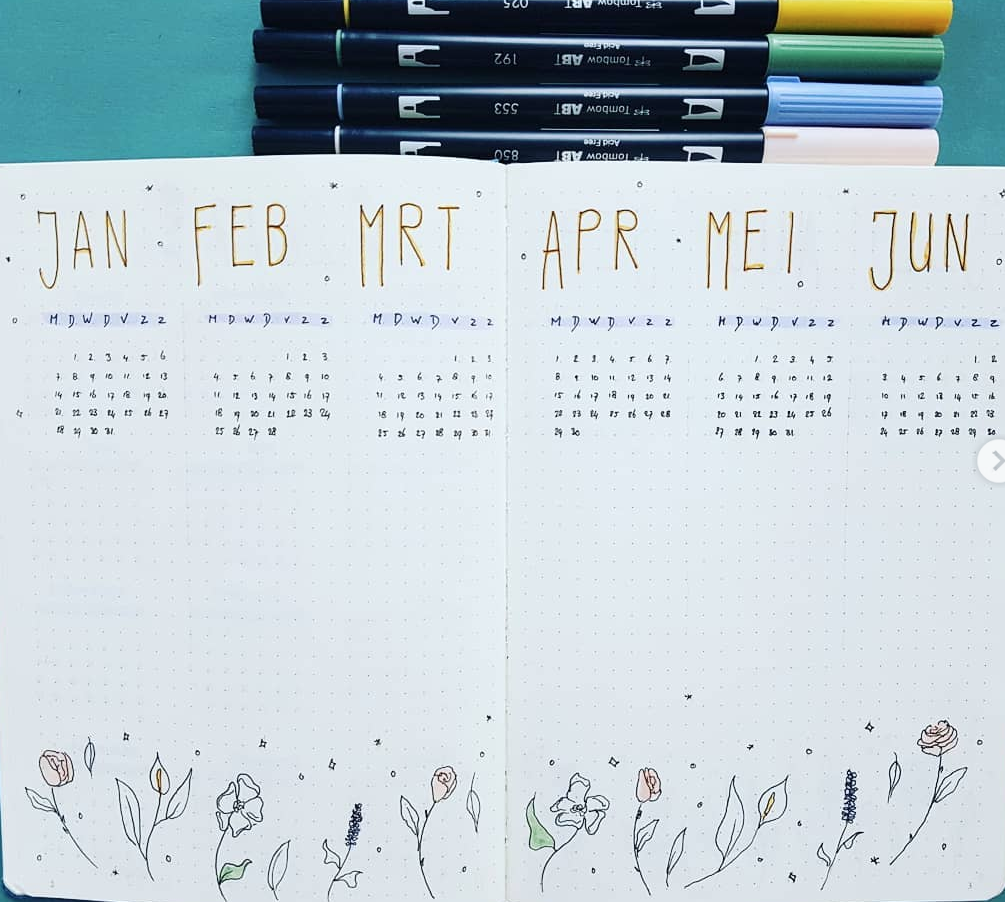 Tombow ABT 025
Acid Free
Tombow ABT 192
Acid Free
Tombow ABT 553
Acid Free
Tombow ABT 850
JAN FEB MRT APR MEI JUN
M D W D V Z Z M D W D V Z Z M D W D V Z Z M D W D V Z Z M D W D V Z Z M D W D V Z Z
1 2 3 4 5 6 1 2 3 1 2 3 1 2 3 4 5 6 7 1 2 3 4 5 1 2
7 8 9 10 11 12 13 4 5 6 7 8 9 10 4 5 6 7 8 9 10 8 9 10 11 12 13 14 6 7 8 9 10 11 12 3 4 5 6 7 8 9
14 15 16 17 18 19 20 11 12 13 14 15 16 17 11 12 13 14 15 16 17 15 16 17 18 19 20 21 13 14 15 16 17 18 19 10 11 12 13 14 15 16
21 22 23 24 25 26 27 18 19 20 21 22 23 24 18 19 20 21 22 23 24 22 23 24 25 26 27 28 20 21 22 23 24 25 26 17 18 19 20 21 22 23
28 29 30 31 25 26 27 28 25 26 27 28 29 30 31 29 30 27 28 29 30 31 24 25 26 27 28 29 30
3